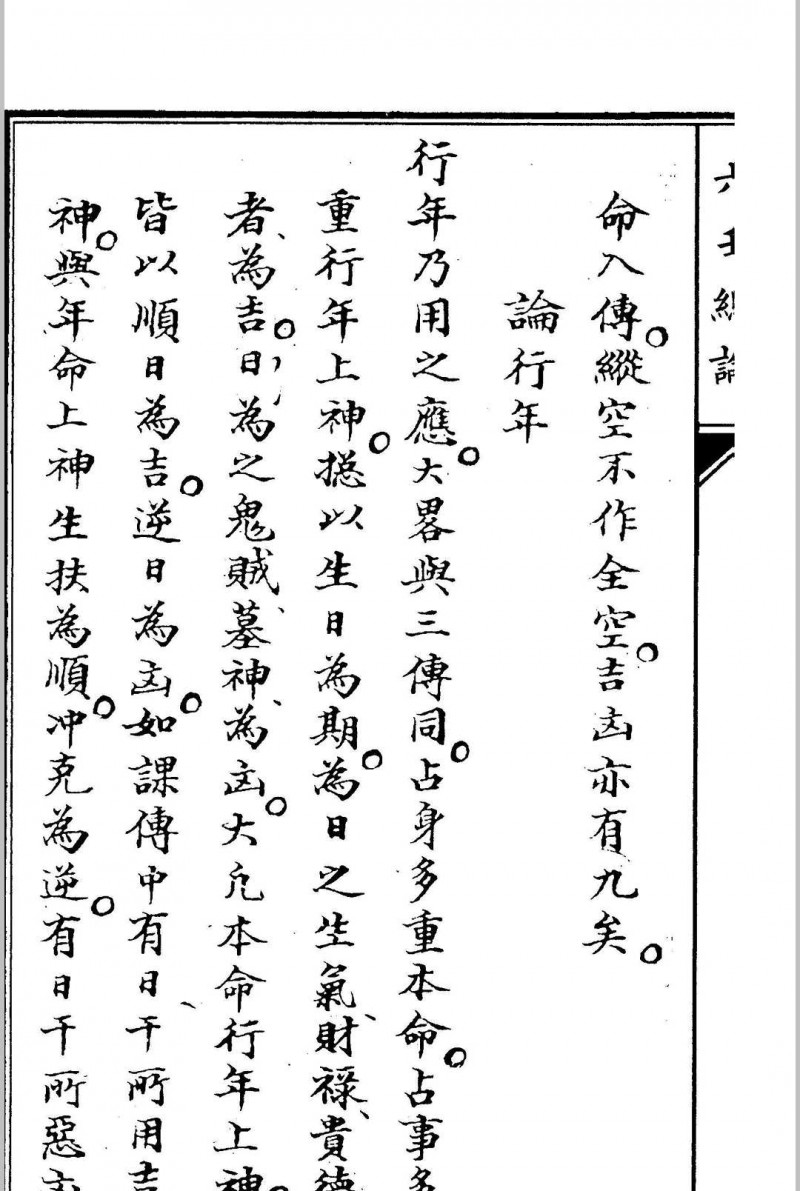 六壬總論
命入傳縱空不作全空吉凶亦有九矣
論行年
行年乃用之應大畧與三傳同占身多重本命占事多
重行年上神揔以生日為期為日之生氣財祿貴德
者為吉日為之鬼賊墓神為凶大凡本命行年上神
皆以順日為吉逆日為凶如課傳中有日干所用吉
神與年命上神生扶為順冲克為逆有日干所惡凶